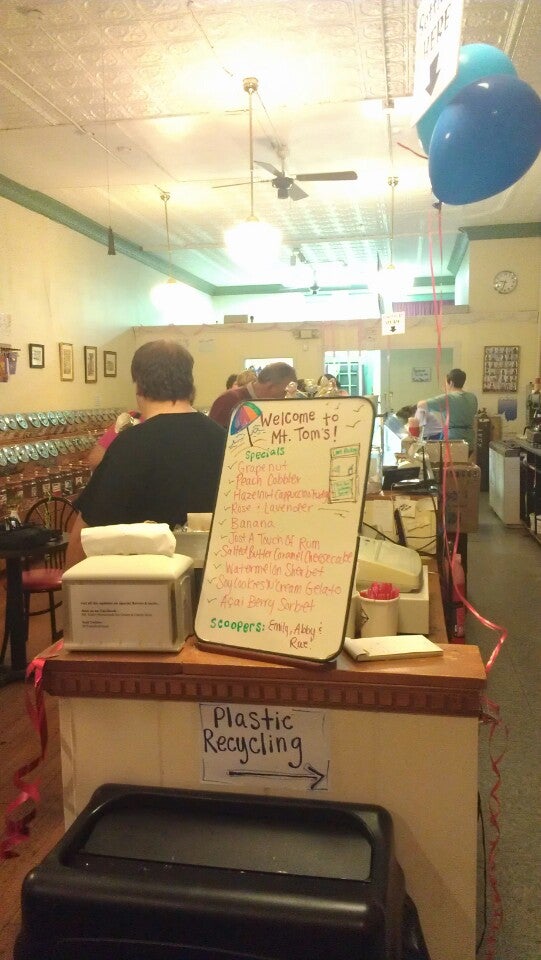 HERE
Welcome to
Mt. Tom's!
Specials
Grapenut
Peach Cobbler
Hazelnut Cappuccino
Rose + Lavender
Banana
Just A Touch Of Rum
Salted Butter Caramel Cheesecake
Watermelon Sherbet
Soy Cookies 'N' Cream Gelato
Açai Berry Sorbet
Scoopers: Emily, Abby &
Rue!
Plastic
Recycling